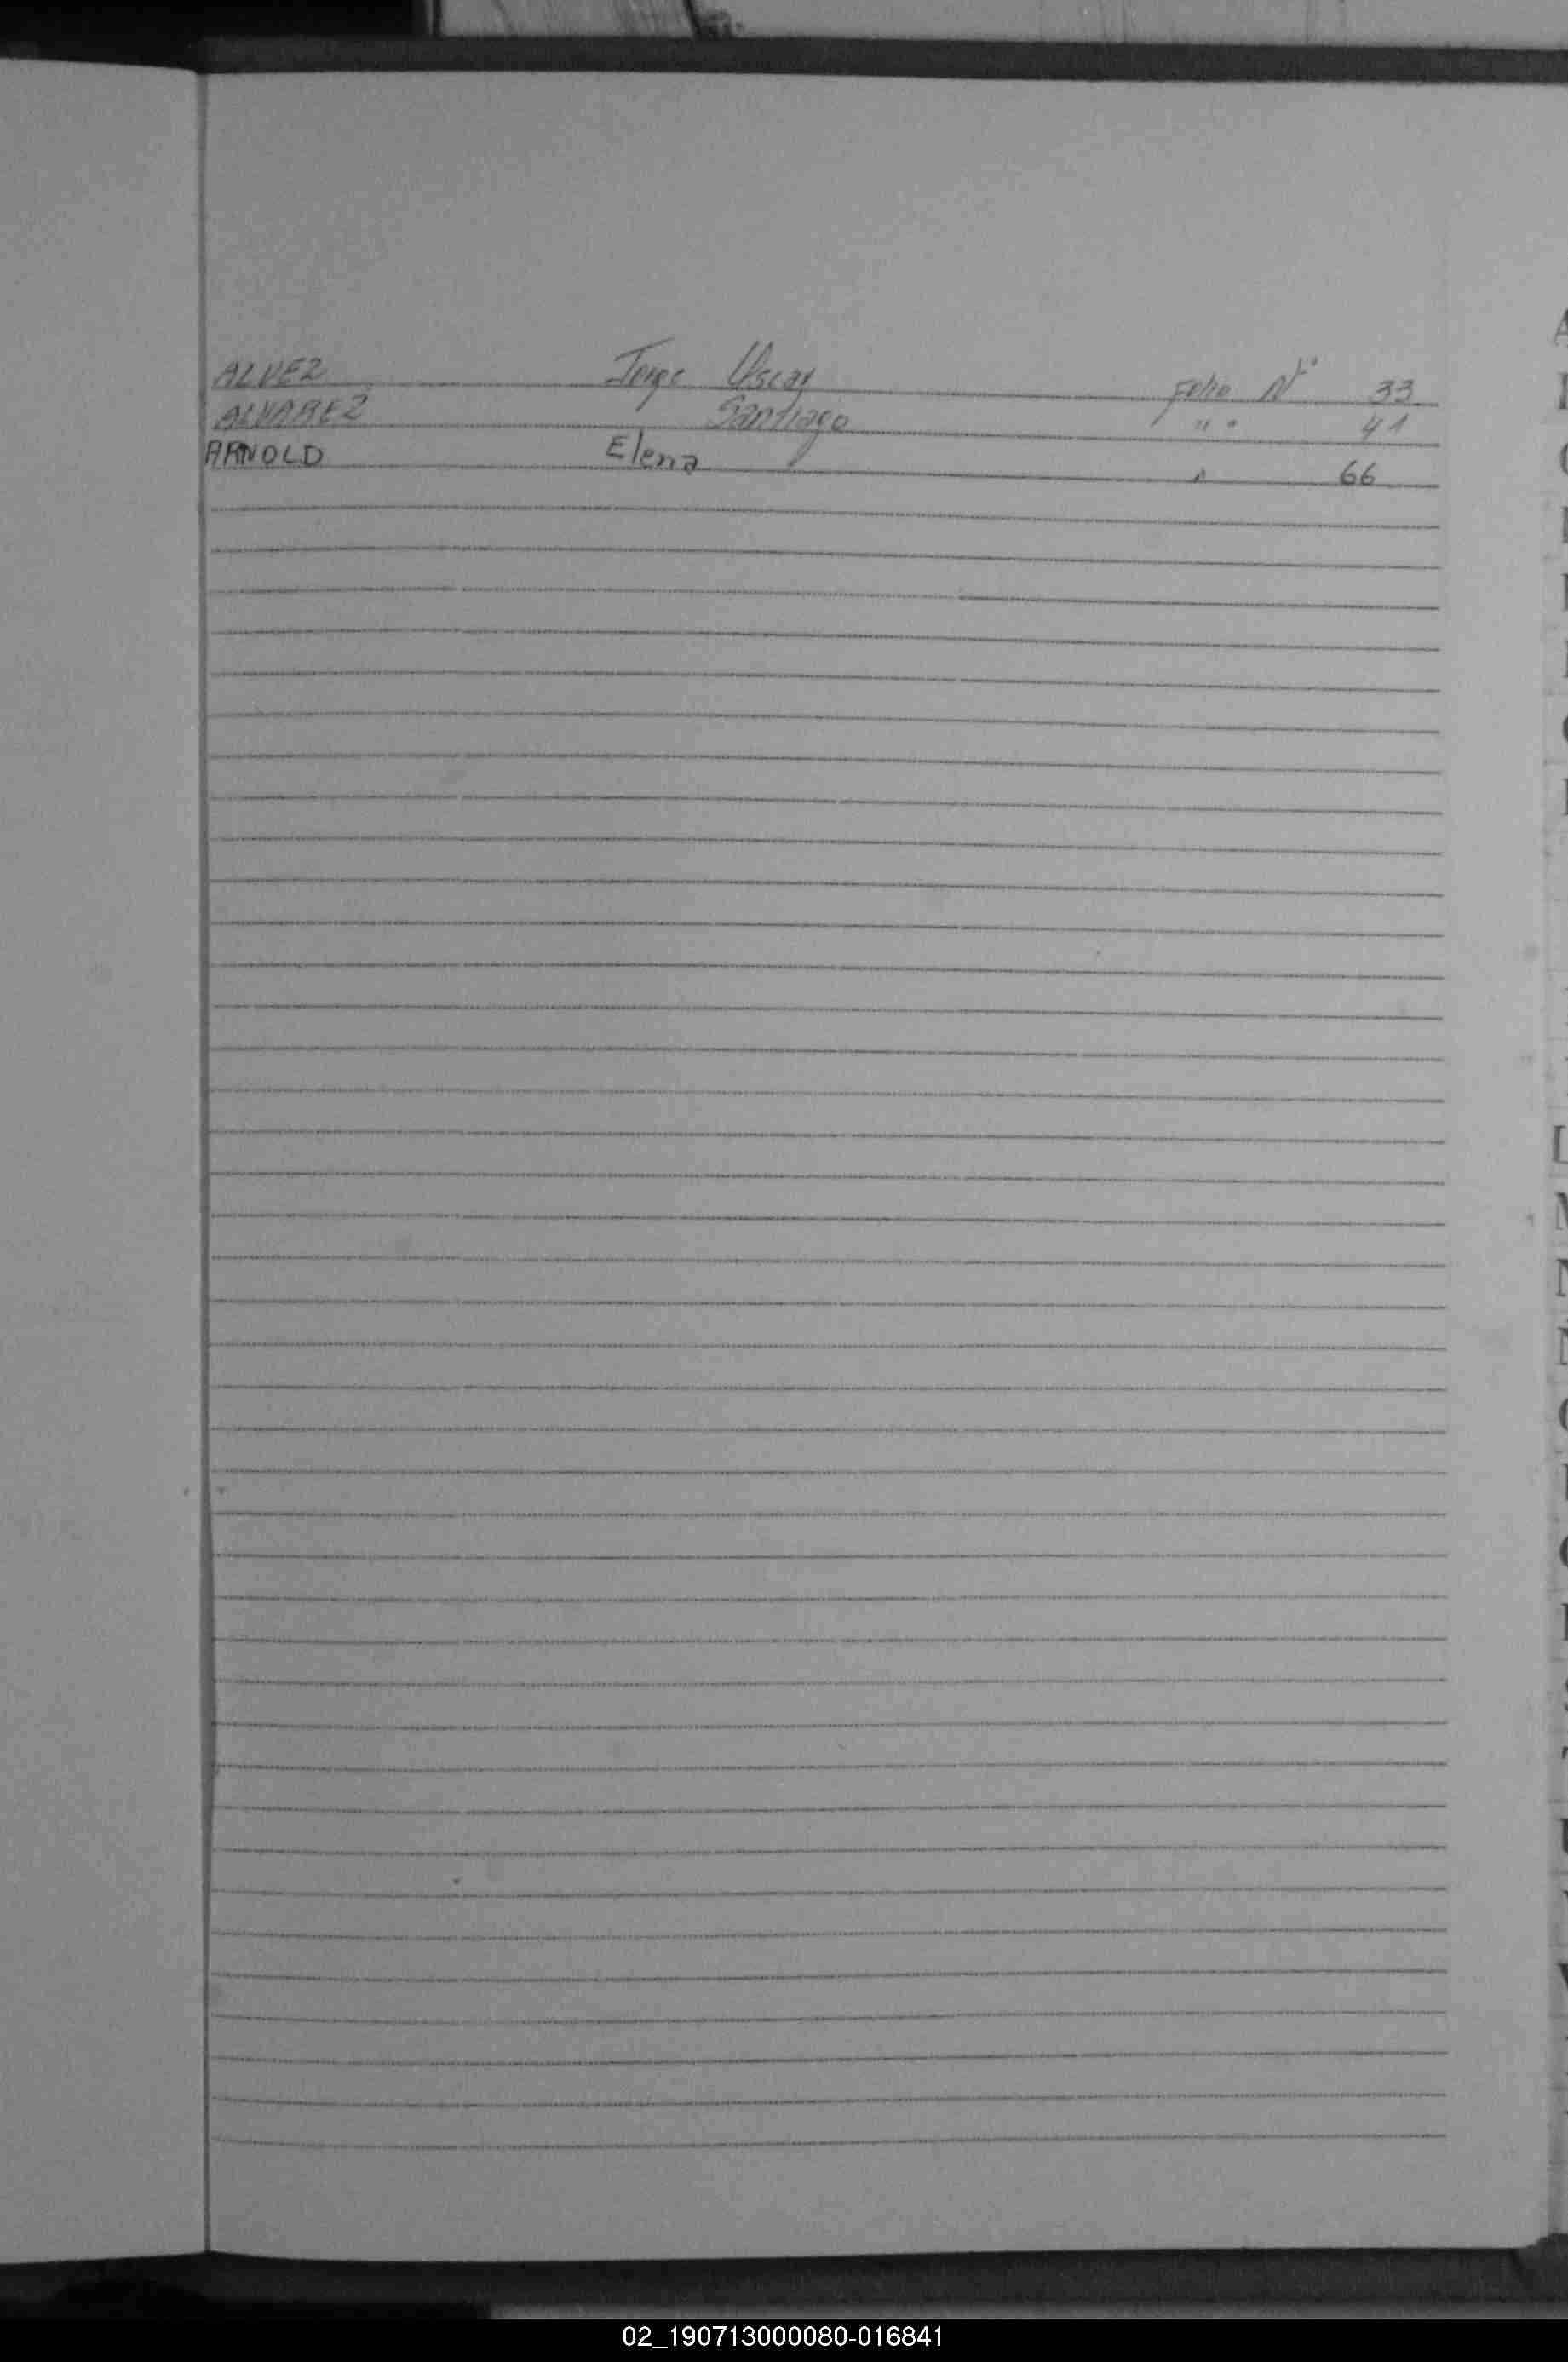 ALVEZ Jorge Oscar Folio Nº 33
ALVAREZ Santiago " " 41
ARNOLD Elena " 66
02_190713000080-016841